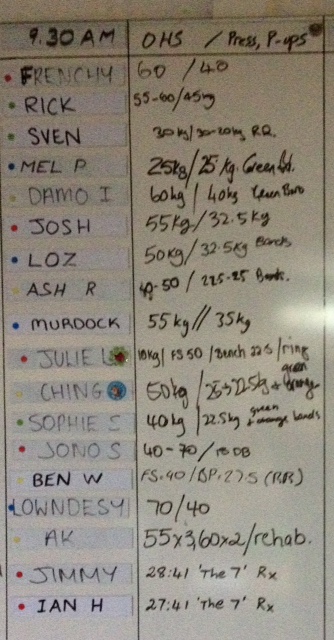 9.30 AM OHS / Press, P-ups
FRENCHY 60 / 40
RICK 55-60/45kg
SVEN 30kg/30-20kg RR.
MEL P 25kg/25kg. Green Bd.
DAMO I 60kg / 40kg Green Band
JOSH 55kg/32.5kg
LOZ 50kg/32.5kg Bands
ASH R 40-50 / 22.5-25 Bands.
MURDOCK 55kg//35kg
JULIE L 10kg/ FS 50 / Bench 22.5 / ring
CHING 50kg / 22.5kg + green orange
SOPHIE S 40kg / 22.5kg green + orange bands
JONO S 40-70/ DB
BEN W FS.40 /DP.27.5 (RR)
LOWNDESY 70/40
AK 55x3,60x2/rehab.
JIMMY 28:41 'The 7' Rx
IAN H 27:41 'The 7' Rx